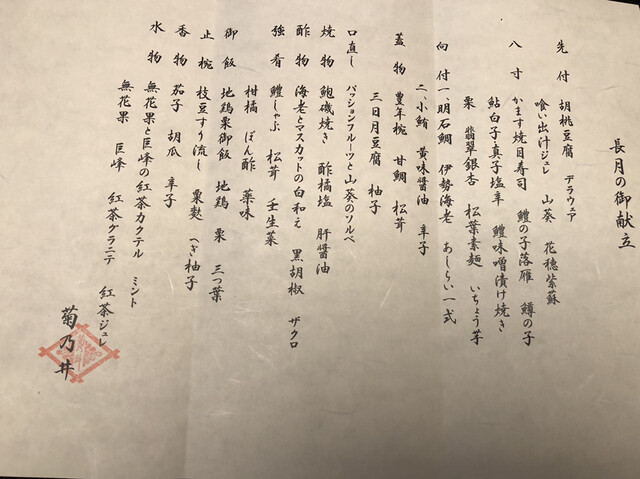 長月の御献立
先付 胡桃豆腐 デラウェア
喰い出汁ジュレ 山葵 花穂紫蘇
八寸 かます焼目寿司 鱧の子落雁 鱒の子
鮎白子真子塩辛 鱧味噌漬け焼き
栗 翡翠銀杏 松葉素麺 いちょう芋
向付 一、明石鯛 伊勢海老 あしらい一式
二、小鮪 黄味醤油 辛子
蓋物 豊年椀 甘鯛 松茸
三日月豆腐 柚子
口直し パッションフルーツと山葵のソルベ
焼物 鮑磯焼き 酢橘塩 肝醤油
酢物 海老とマスカットの白和え 黒胡椒 ザクロ
強肴 鱧しゃぶ 松茸 壬生菜
柑橘 ぽん酢 薬味
御飯 地鶏栗御飯 地鶏 栗 三つ葉
止椀 枝豆すり流し 粟麩 へぎ柚子
香物 茄子 胡瓜 辛子
水物 無花果と巨峰の紅茶カクテル ミント
無花果 巨峰 紅茶グラニテ 紅茶ジュレ
菊乃井